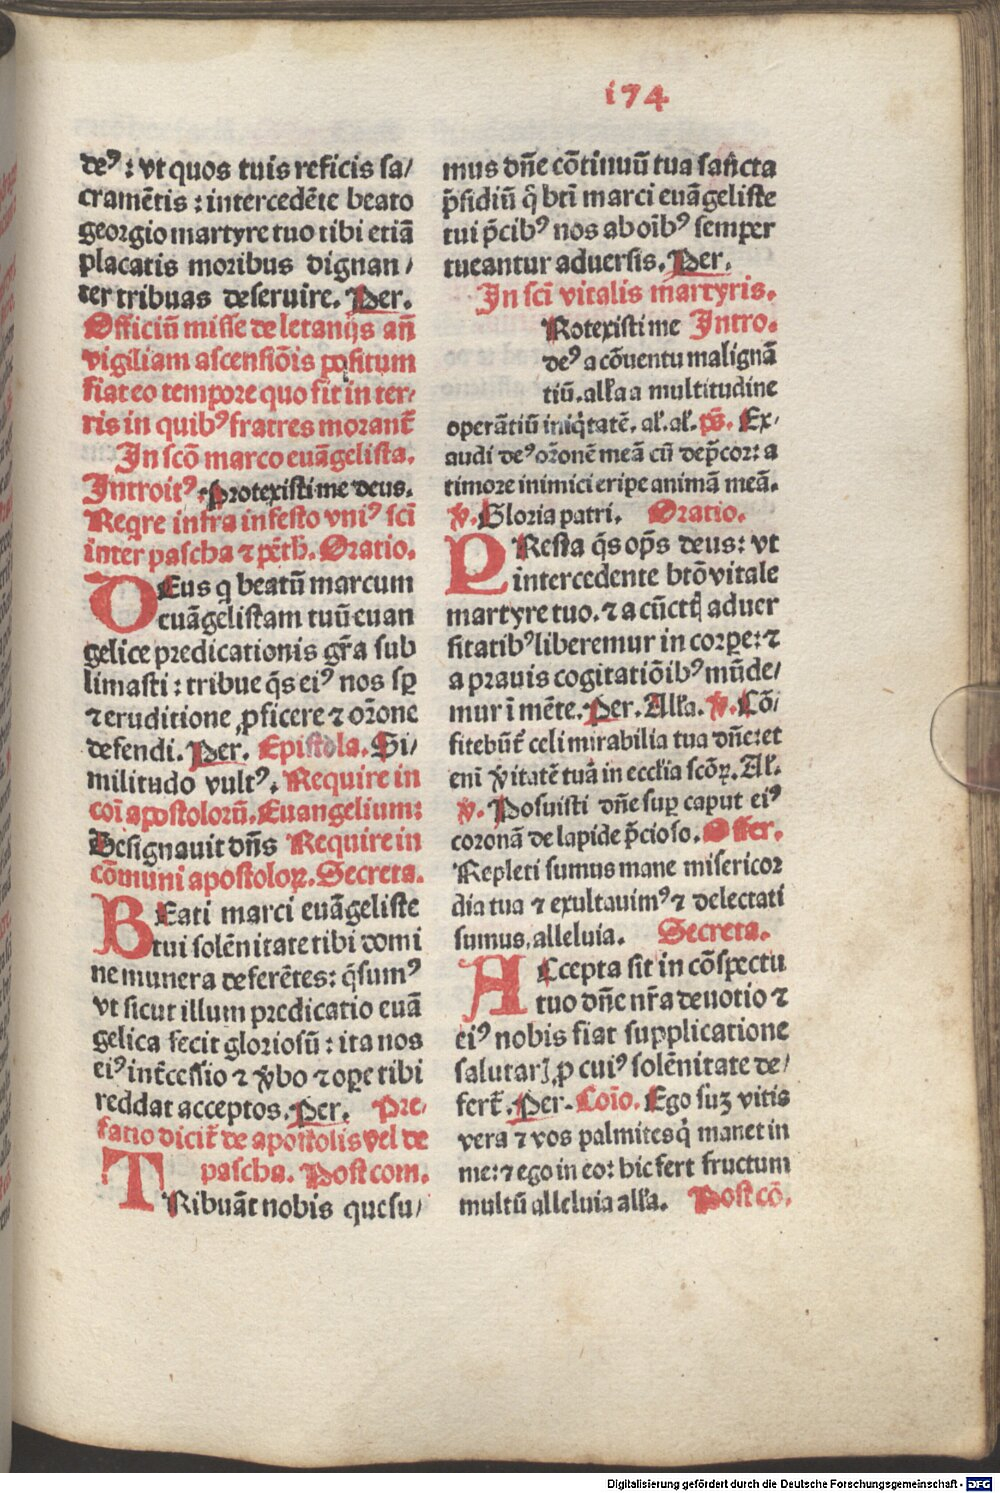 174
deꝰ: vt quos tuis reficis sa/
cramētis: intercedēte beato
georgio martyre tuo tibi etiā
placatis moribus dignan/
ter tribuas deseruire. Per.
Officiū misse de letanijs añ
vigiliam ascensiōis positum
fiat eo tempore quo fit in ter/
ris in quibꝰ fratres moranť
In scō marco euāgelista.
Introitꝰ. Protexisti me deus.
Reqre infra in festo vniꝰ sci
inter pascha ⁊ pēth. Oratio.
DEus q beatū marcum
euāgelistam tuū euan
gelice predicationis gr̄a sub
limasti: tribue q̄s eiꝰ nos sꝑ
⁊ eruditione ꝓficere ⁊ or̄one
defendi. Per. Epistola. Si/
militudo vultꝰ. Require in
coī apostolorū. Euangelium:
Designauit dn̄s Require in
cōmuni apostoloꝝ. Secreta.
BEati marci euāgeliste
tui solēnitate tibi domi
ne munera deferētes: q̄sumꝰ
vt sicut illum predicatio euā
gelica fecit gloriosū: ita nos
eiꝰ int̄cessio ⁊ v̄bo ⁊ oꝑe tibi
reddat acceptos. Per. Pre/
fatio diciť de apostolis vel de
pascha. Post com.
TRibuāt nobis quesu/
mus dn̄e cōtinuū tua sancta
p̄sidiū q̄ bt̄i marci euāgeliste
tui p̄cibꝰ nos ab oībꝰ semper
tueantur aduersis. Per.
In scī vitalis martyris.
Rotexisti me Intro.
deꝰ a cōuentu malignā
tiū. all'a a multitudine
operātiū iniq̇tatē. al'. al'. ps̄. Ex/
audi deꝰ or̄onē meā cū dep̄cor: a
timore inimici eripe animā meā.
v̄. Gloria patri. Oratio.
PResta q̄s op̄s deus: vt
intercedente btō vitale
martyre tuo. ⁊ a cūctꝭ aduer
sitatibꝰ liberemur in corꝑe: ⁊
a prauis cogitatiōibꝰ mūde/
mur ī mēte. Per. All'a. v̄. Cō/
fitebūť celi mirabilia tua dn̄e: et
enī v̄itatē tuā in ecclīa scōꝝ. Al'.
v̄. Posuisti dn̄e suꝑ caput eiꝰ
coronā de lapide p̄cioso. Offer.
Repleti sumus mane misericor
dia tua ⁊ exultauimꝰ ⁊ delectati
sumus, alleluia. Secreta.
ACcepta sit in cōspectu
tuo dn̄e nr̄a deuotio ⁊
eiꝰ nobis fiat supplicatione
salutarꝭ, ꝓ cuiꝰ solēnitate de/
ferť. Per. Coīo. Ego suꝫ vitis
vera ⁊ vos palmites q̇ manet in
me: ⁊ ego in eo: hic fert fructum
multū alleluia all'a. Post cō.
Digitalisierung gefördert durch die Deutsche Forschungsgemeinschaft - DFG